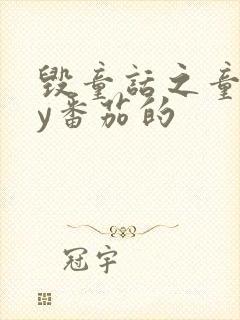 毁童话之童
y番茄的
冠宇